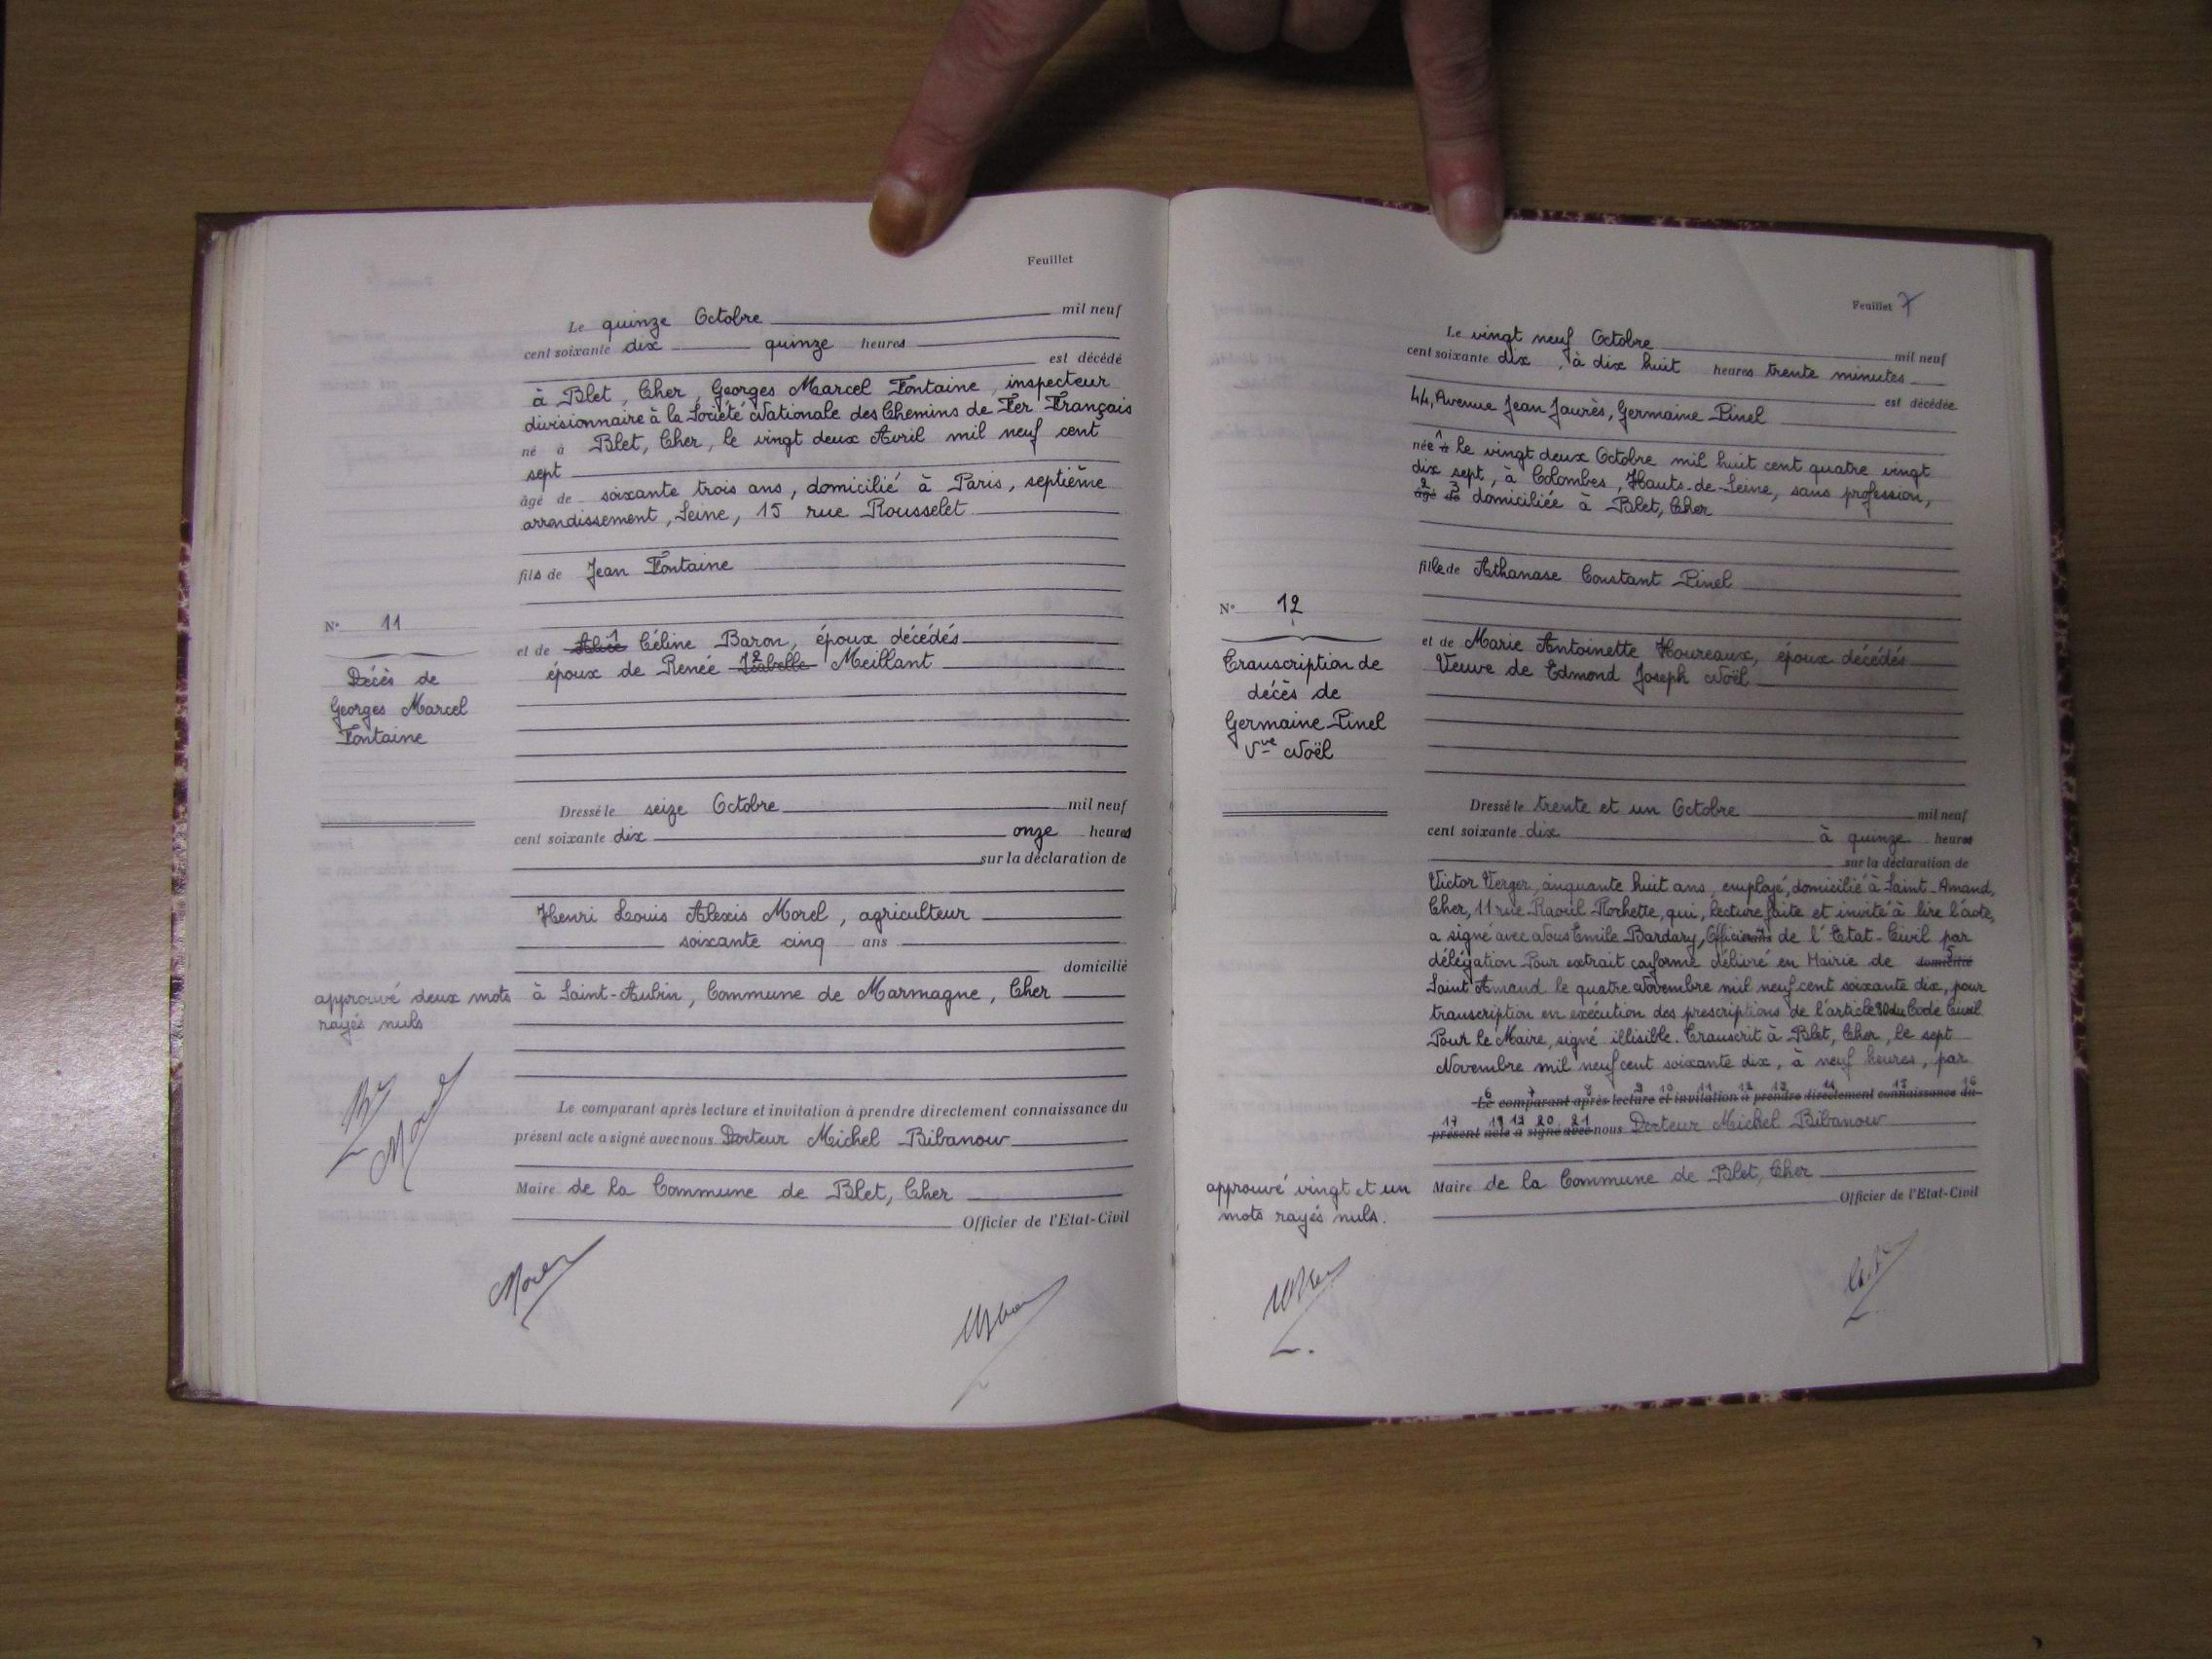 Feuillet
Le quinze Octobre mil neuf
cent soixante dix quinze heures
est décédé
à Blet, Cher, Georges Marcel Fontaine, inspecteur
divisionnaire à la Société Nationale des Chemins de Fer Français
né à Blet, Cher, le vingt deux Avril mil neuf cent
sept
âgé de soixante trois ans, domicilié à Paris, septième
arrondissement, Seine, 15 rue Rousselet
fils de Jean Fontaine
N° 11
Décès de
Georges Marcel
Fontaine
et de Alice 1 Céline Baron, époux décédés
époux de Renée Isabelle 2 Meillant
Dressé le seize Octobre mil neuf
cent soixante dix onze heures
sur la déclaration de
Henri Louis Alexis Morel, agriculteur
soixante cinq ans
domicilié
à Saint-Aubin, Commune de Marmagne, Cher
approuvé deux mots
rayés nuls
Le comparant après lecture et invitation à prendre directement connaissance du
présent acte a signé avec nous Docteur Michel Bibanow
Maire de la Commune de Blet, Cher
Officier de l'Etat-Civil
Feuillet 7
Le vingt neuf Octobre mil neuf
cent soixante dix, à dix huit heures trente minutes
est décédée
44, Avenue Jean Jaurès, Germaine Pinel
née à 1 le vingt deux Octobre mil huit cent quatre vingt
dix sept, à Colombes, Hauts-de-Seine, sans profession,
âgé 2 de 3 domiciliée à Blet, Cher
fille de Athanase Constant Pinel
N° 12
Transcription de
décès de
Germaine Pinel
Vve Noël
et de Marie Antoinette Houreaux, époux décédés
Veuve de Edmond Joseph Noël
Dressé le trente et un Octobre mil neuf
cent soixante dix à quinze heures
sur la déclaration de
Victor Verger, cinquante huit ans, employé, domicilié à Saint-Amand,
Cher, 11 rue Raoul Rochette, qui, lecture faite et invité à lire l'acte,
a signé avec Nous Emile Bardary, Officier ans 4 de l'Etat-Civil par
délégation Pour extrait conforme délivré en Mairie de domicilié 5
Saint Amand le quatre Novembre mil neuf cent soixante dix, pour
transcription en exécution des prescriptions de l'article 80 du Code Civil
Pour le Maire, signé illisible. Transcrit à Blet, Cher, le sept
Novembre mil neuf cent soixante dix, à neuf heures, par
6 7 8 9 10 11 12 13 14 15 16
Le comparant après lecture et invitation à prendre directement connaissance du
17 18 19 20 21
présent acte a signé avec nous Docteur Michel Bibanow
Maire de la Commune de Blet, Cher
Officier de l'Etat-Civil
approuvé vingt et un
mots rayés nuls.